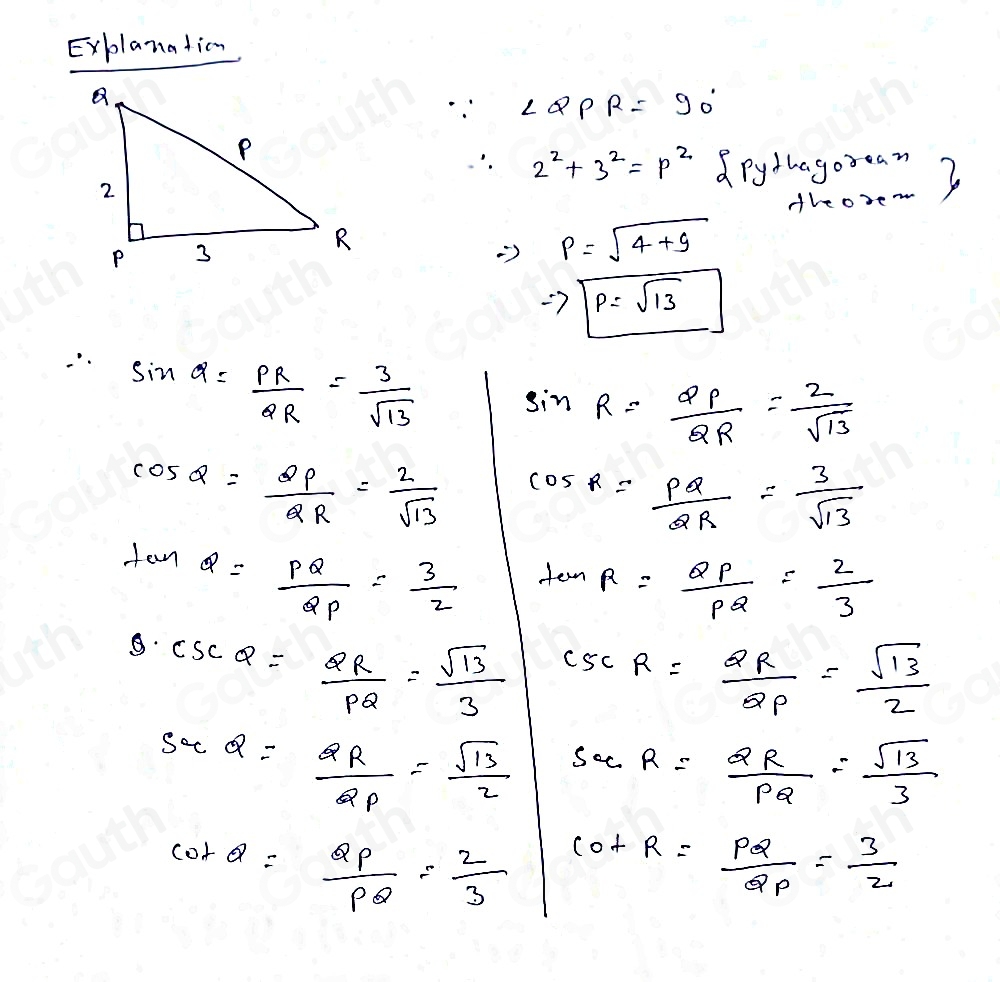 Explanation
Q
P
2
P
3
R
∵ ∠QPR = 90°
∴ 2² + 3² = p² {Pythagorean theorem}
=> P = √4+9
=> P = √13
∴ Sin Q = PR/QR = 3/√13
cos Q = QP/QR = 2/√13
tan Q = PQ/QP = 3/2
csc Q = QR/PQ = √13/3
Sec Q = QR/QP = √13/2
cot Q = QP/PQ = 2/3
Sin R = QP/QR = 2/√13
cos R = PQ/QR = 3/√13
tan R = QP/PQ = 2/3
csc R = QR/QP = √13/2
Sec R = QR/PQ = √13/3
cot R = PQ/QP = 3/2
Gauth